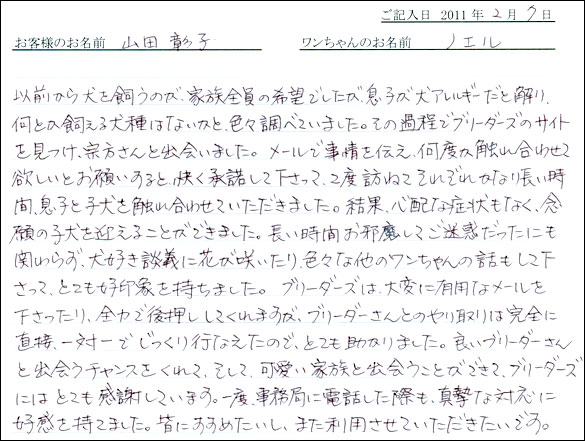 ご記入日 2011年 2月 7日
お客様のお名前 山田 彰子 ワンちゃんのお名前 ノエル
以前から犬を飼うのが、家族全員の希望でしたが、息子が犬アレルギーだと解り、
何とか飼える犬種はないかと、色々調べていました。その過程でブリーダーズのサイト
を見つけ、宗方さんと出会いました。メールで事情を伝え、何度か触れ合わせて
欲しいとお願いすると、快く承諾して下さって、2度訪ねてそれぞれかなり長い時
間、息子と子犬を触れ合わせていただきました。結果、心配な症状もなく、念
願の子犬を迎えることができました。長い時間お邪魔してご迷惑だったにも
関わらず、犬好き談義に花が咲いたり、色々な他のワンちゃんの話もして下
さって、とても好印象を持ちました。ブリーダーズは、大変に有用なメールを
下さったり、全力で後押ししてくれますが、ブリーダーさんとのやり取りは完全に
直接、一対一でじっくり行なえたので、とても助かりました。良いブリーダーさん
と出会うチャンスをくれて、そして、可愛い家族と出会うことができて、ブリーダーズ
にはとても感謝しています。一度、事務局に電話した際も、真摯な対応に
好感を持てました。皆にすすめたいし、また利用させていただきたいです。